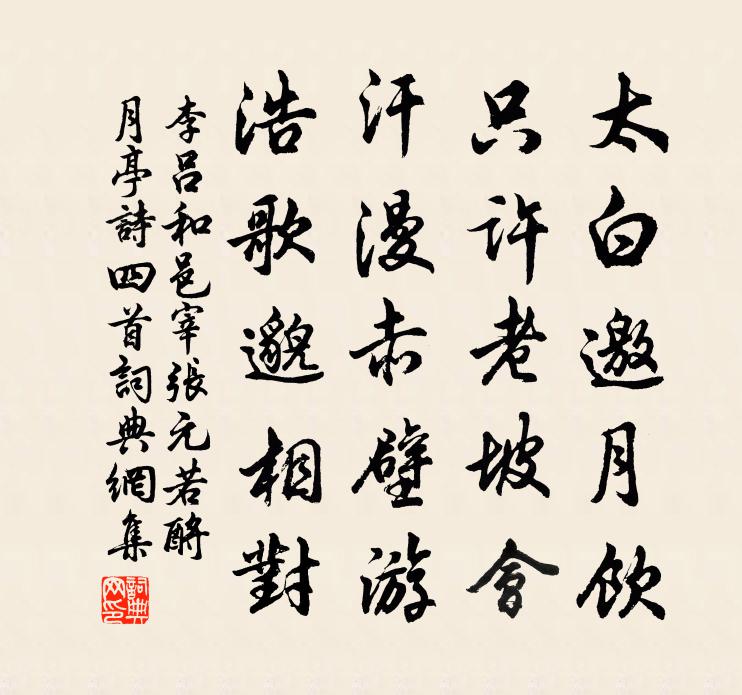 太白邀月飲
只許老坡會
汗漫赤壁游
浩歌邈相對
李呂和邑宰張元若酹
月亭詩四首詞典網集